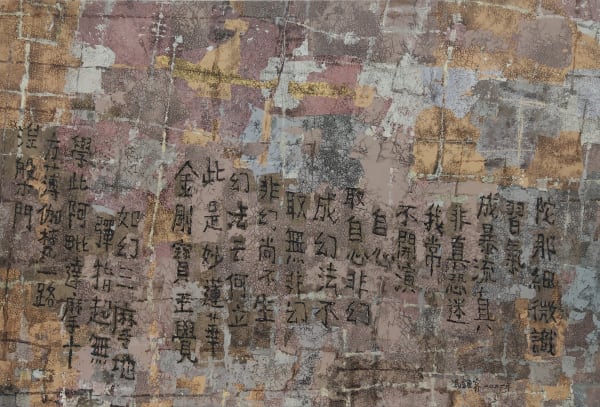 陀那細微識
習氣
成暴流真
非真恐迷
我常
不開演
自心
取自心非幻
成幻法不
取無非幻
非幻尚不生
幻法云何立
此是妙蓮華
金剛寶王覺
如幻三摩地
彈指超無
學此阿毗達摩十
薄伽梵一路
涅槃門